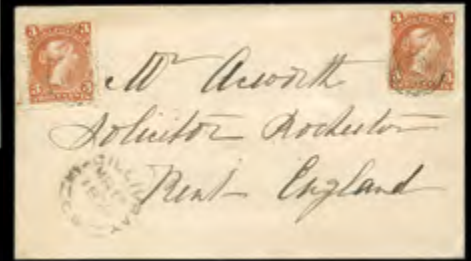 3 3
3 3
Mr Acworth
Solicitor Rochester
Kent England